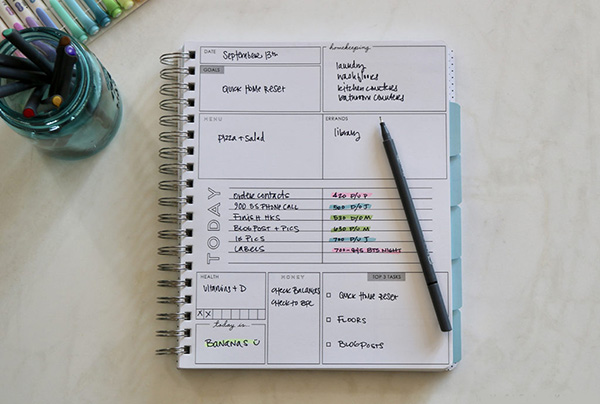 DATE September 13th
GOALS
Quick Home Reset
housekeeping
laundry
wash floors
kitchen counters
bathroom counters
MENU
pizza + salad
ERRANDS
library
TODAY
order contacts
900 DS PHONE CALL
Finish HKS
BLOG POST + PICS
IG PICS
LABELS
420 D/O P
500 D/O J
530 D/O M
630 P/O M
700 P/O J
700-845 BTS NIGHT
HEALTH
Vitamins + D
X X
today is...
BANANAS
MONEY
check Balances
check to
TOP 3 TASKS
Quick Home Reset
FLOORS
BLOG POSTS